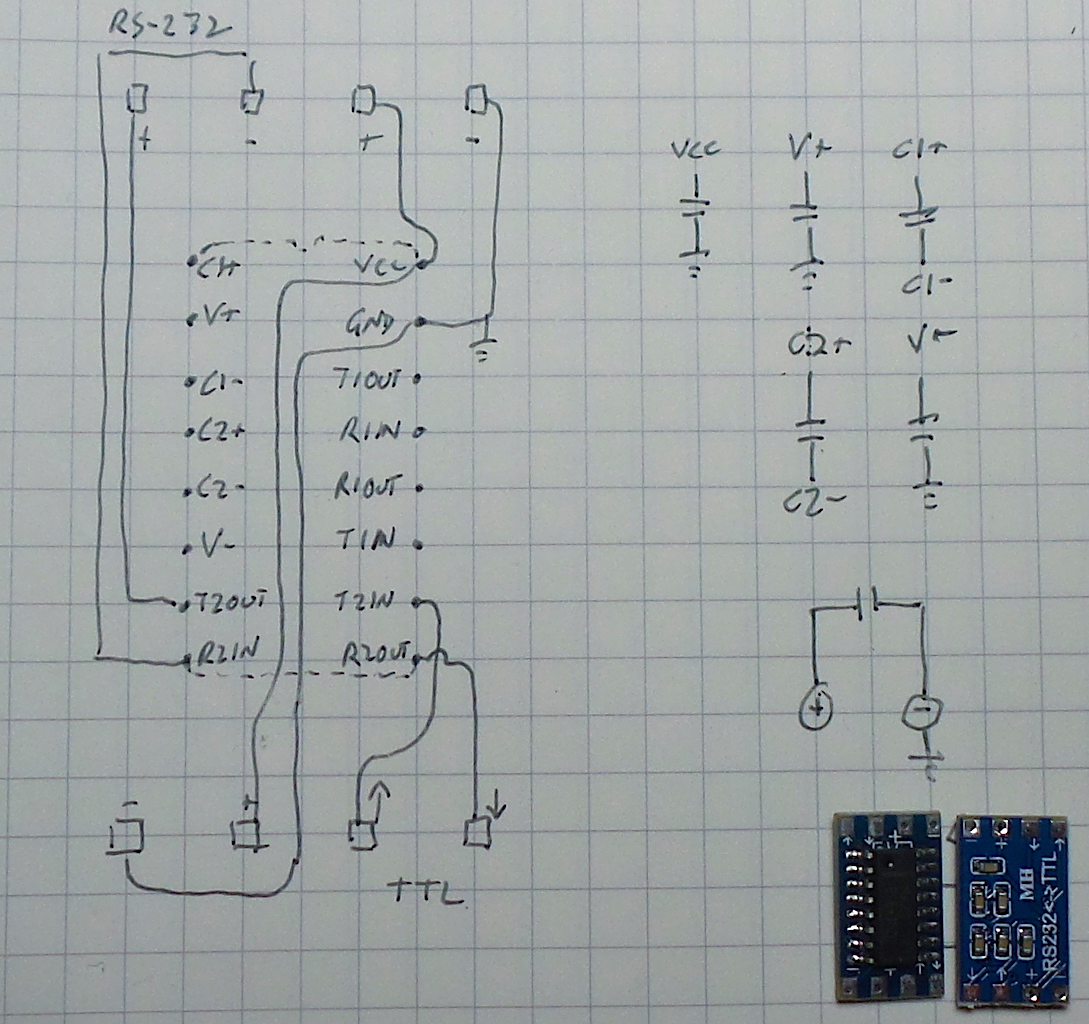 RS-232
+ - + -
C1+ VCC
V+ GND
C1- T1OUT
C2+ R1IN
C2- R1OUT
V- T1IN
T2OUT T2IN
R2IN R2OUT
- +
TTL
VCC V+ C1+
C1-
C2+ V-
C2-
+ -
MH
RS232<=>TTL